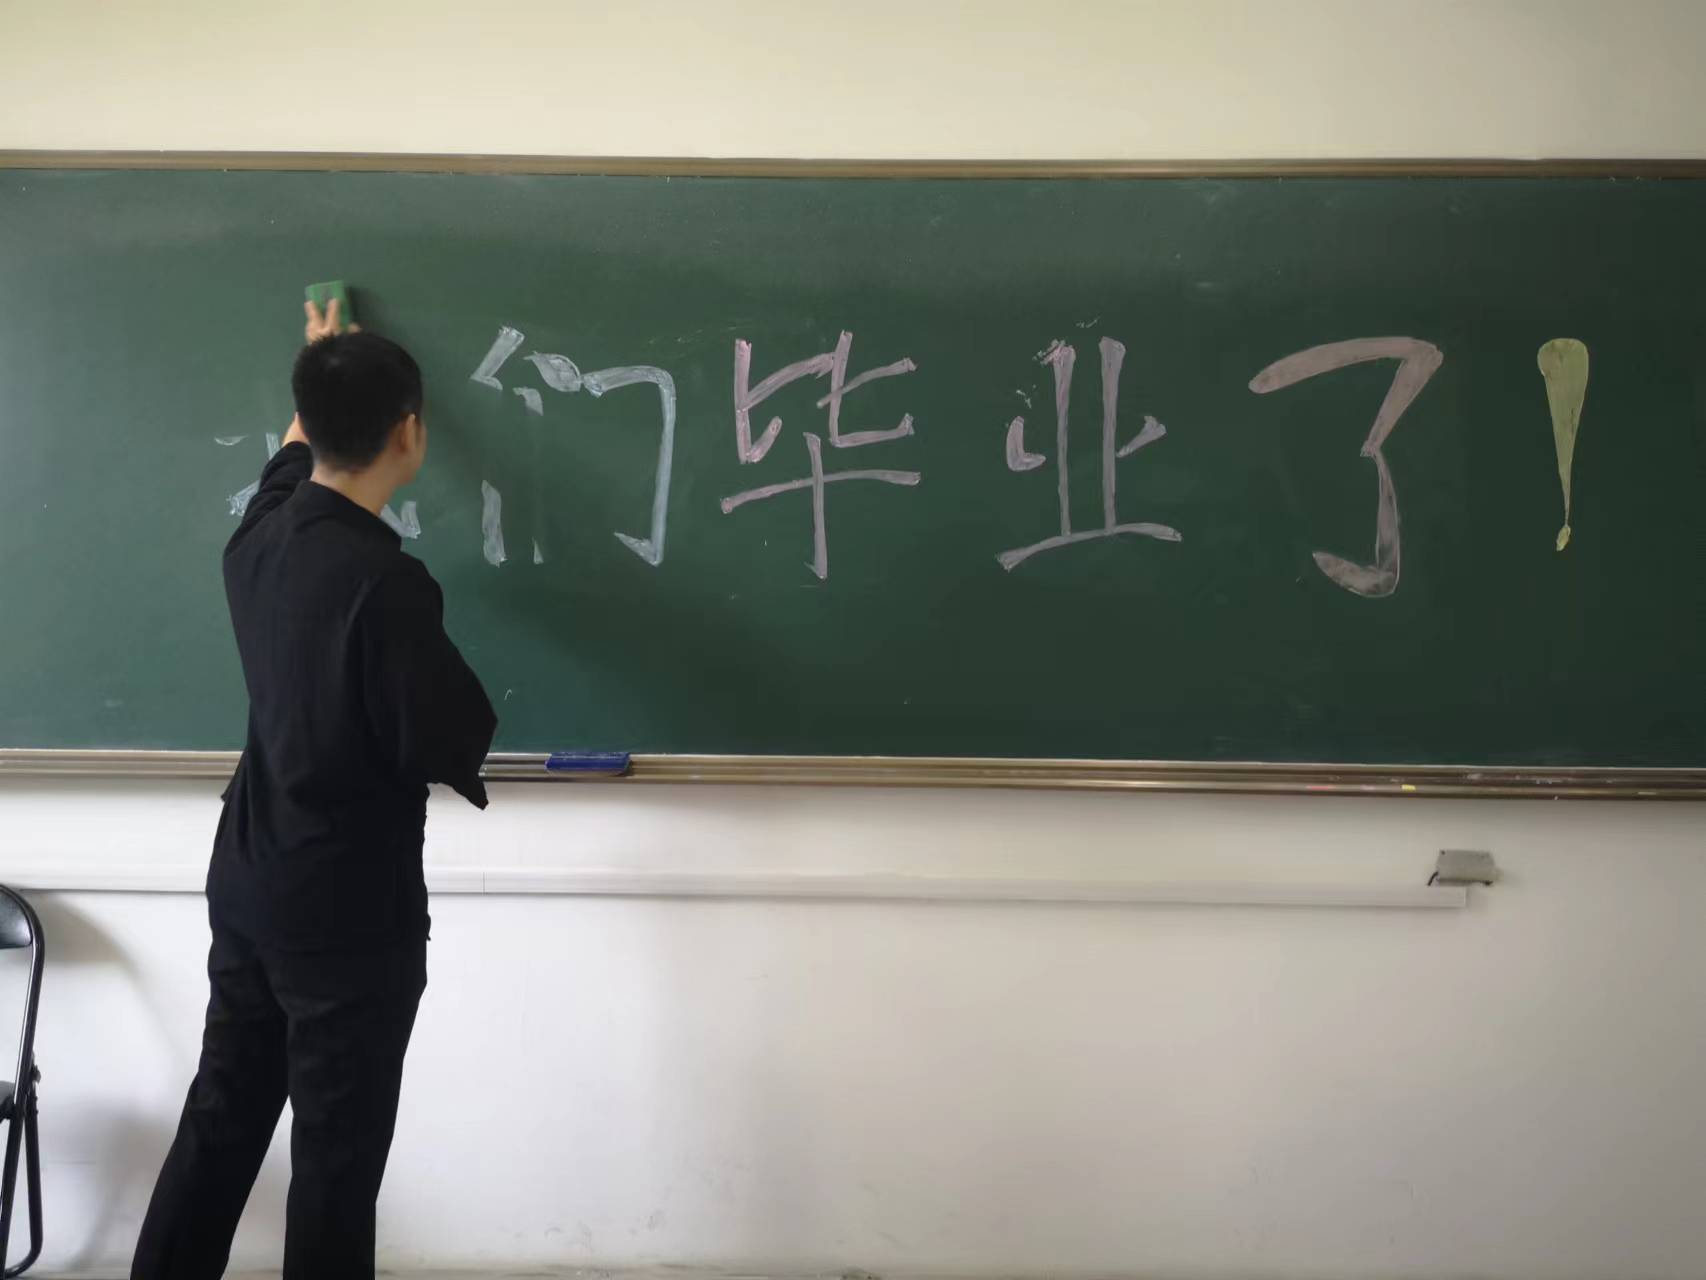 们毕业了！